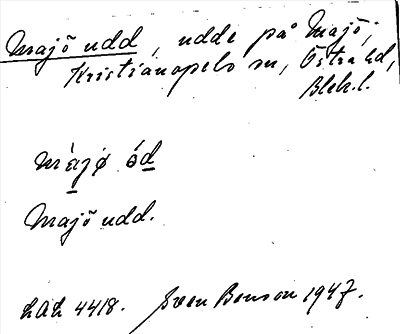 Majö udd, udde på Majö,
Kristianopels sn, Östra hd,
Blek.l.
màjø ód
Majö udd.
LAL 4418. Sven Benson 1947.